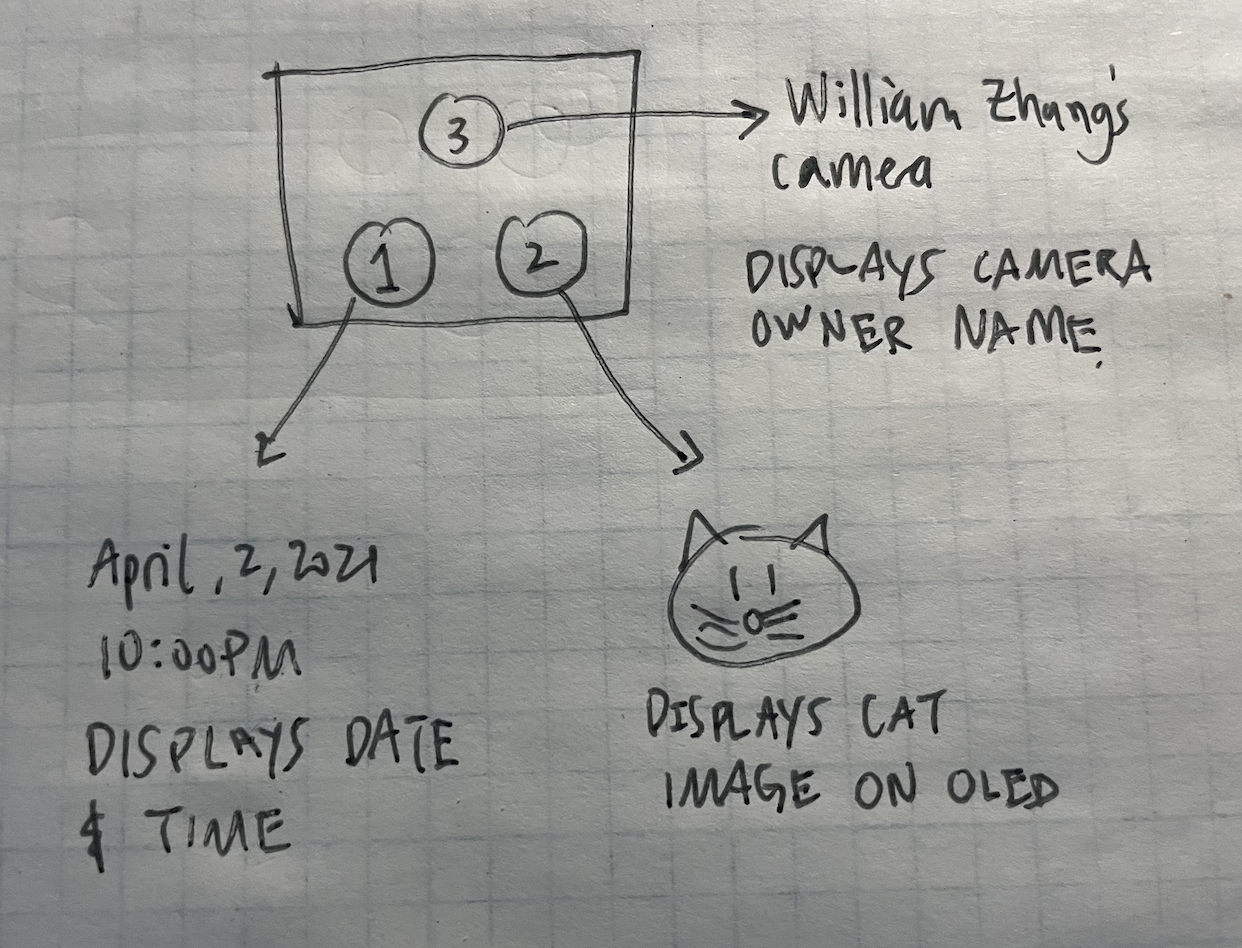 3
William Zhang's
camera
1
2
DISPLAYS CAMERA
OWNER NAME.
April, 2, 2021
10:00PM
DISPLAYS DATE
& TIME
DISPLAYS CAT
IMAGE ON OLED